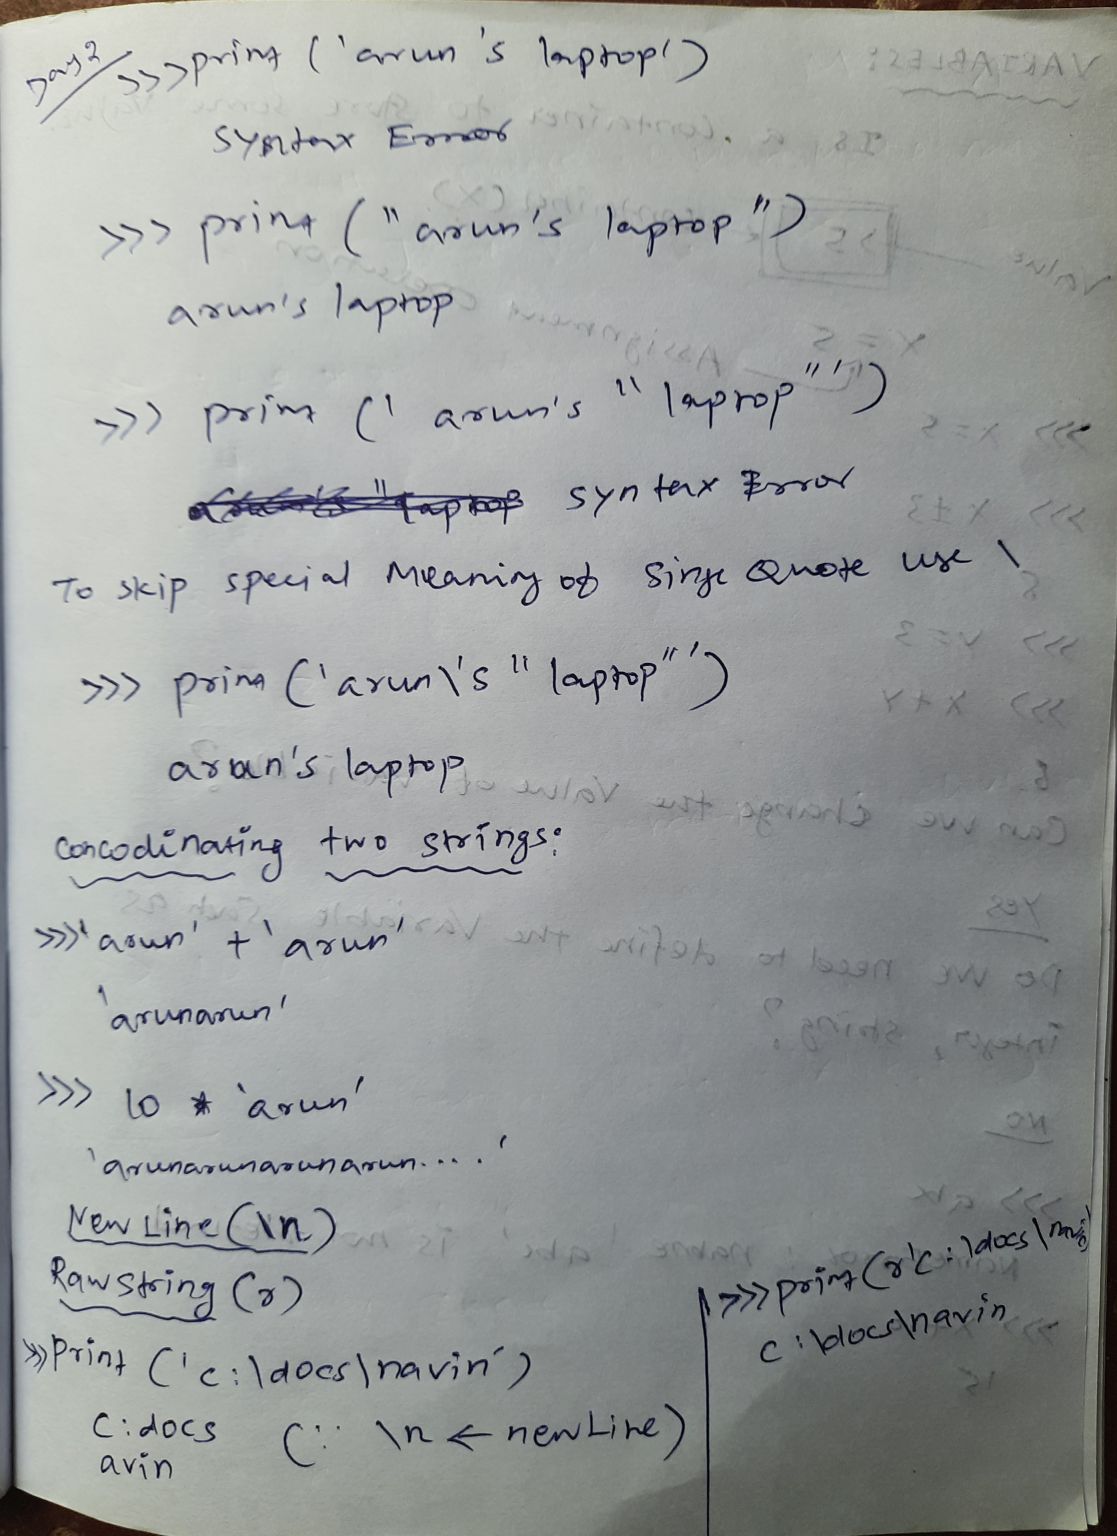 Day 2
>>> print ('arun's laptop')
Syntax Error
>>> print ("arun's laptop")
arun's laptop
>>> print (' arun's "laptop"')
syntax Error
To skip special Meaning of Single Quote use \
>>> print ('arun\'s "laptop"')
arun's laptop
Concodinating two strings:
>>> 'arun' + 'arun'
'arunarun'
>>> 10 * 'arun'
'arunarunarunarun....'
New Line (\n)
Raw string (r)
>>> Print ('c:\docs\navin')
C:docs
avin
(∵ \n ← newLine)
>>> print (r'c:\docs\navin
c:\docs\navin